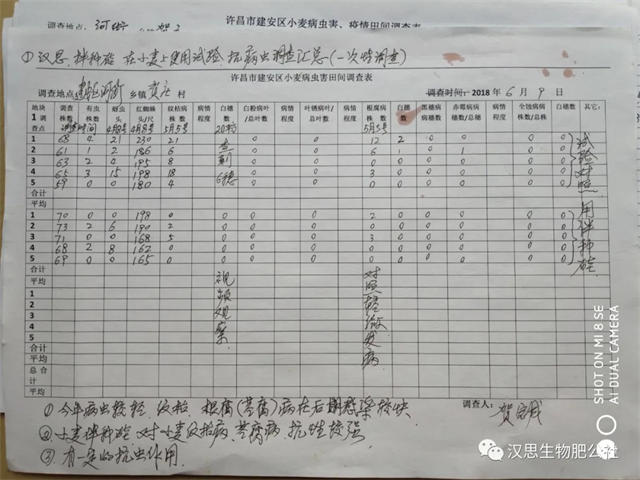 许昌市建安区小麦病虫害、疫情田间调查表
调查地点:
①汉思 拌种雄 在小麦上使用试验 抗病虫调查汇总(一次特调查)
许昌市建安区小麦病虫害田间调查表
调查地点 建安区河街 乡镇 贺庄 村 调查时间: 2018 年 6 月 9 日
地块 调查株数 有虫株数 蚜虫头 红蜘蛛头/尺 纹枯病株数 病情程度 白穗数 白粉病叶/总叶数 病情程度 叶锈病叶/总叶数 病情程度 根腐病株数 白穗数 黑穗病病穗数 赤霉病病穗/总穗 病情程度 全蚀病病株数/总株 白穗数 其它:
1调查点 调查时间 4月8号 4月8号 5月5号 5月5号
1 68 4 21 230 21 0 0 12 2 0 0 0 0
2 61 1 2 186 6 0 0 6 1 0 1 0 0
3 63 2 4 195 8 0 0 0 0 0 0 0 0
4 65 3 15 198 18 0 0 3 0 0 0 0 0
5 59 0 0 180 4 0 0 0 0 0 0 0 0
试验对照
合计
平均
1 70 0 0 198 0 0 0 0 2 0 0 0 0 0
2 73 2 6 180 2 0 0 0 0 0 0 0 0 0
3 71 0 0 168 5 0 0 0 3 0 0 0 0 0
4 68 2 8 162 0 0 0 0 0 0 0 0 0 0
5 69 0 0 165 0 0 0 0 0 0 0 0 0 0
用拌种雄
合计
平均
1
2
3
4
5
合计
平均
总合计
平均
①今年病虫较轻 纹枯 根腐(茎腐)病在后期感染较快
②小麦拌种雄 对小麦纹枯病、茎腐病 抗性较强
③有一定的抗虫作用.
调查人:
SHOT ON MI 8 SE
AI DUAL CAMERA
汉思生物肥公社